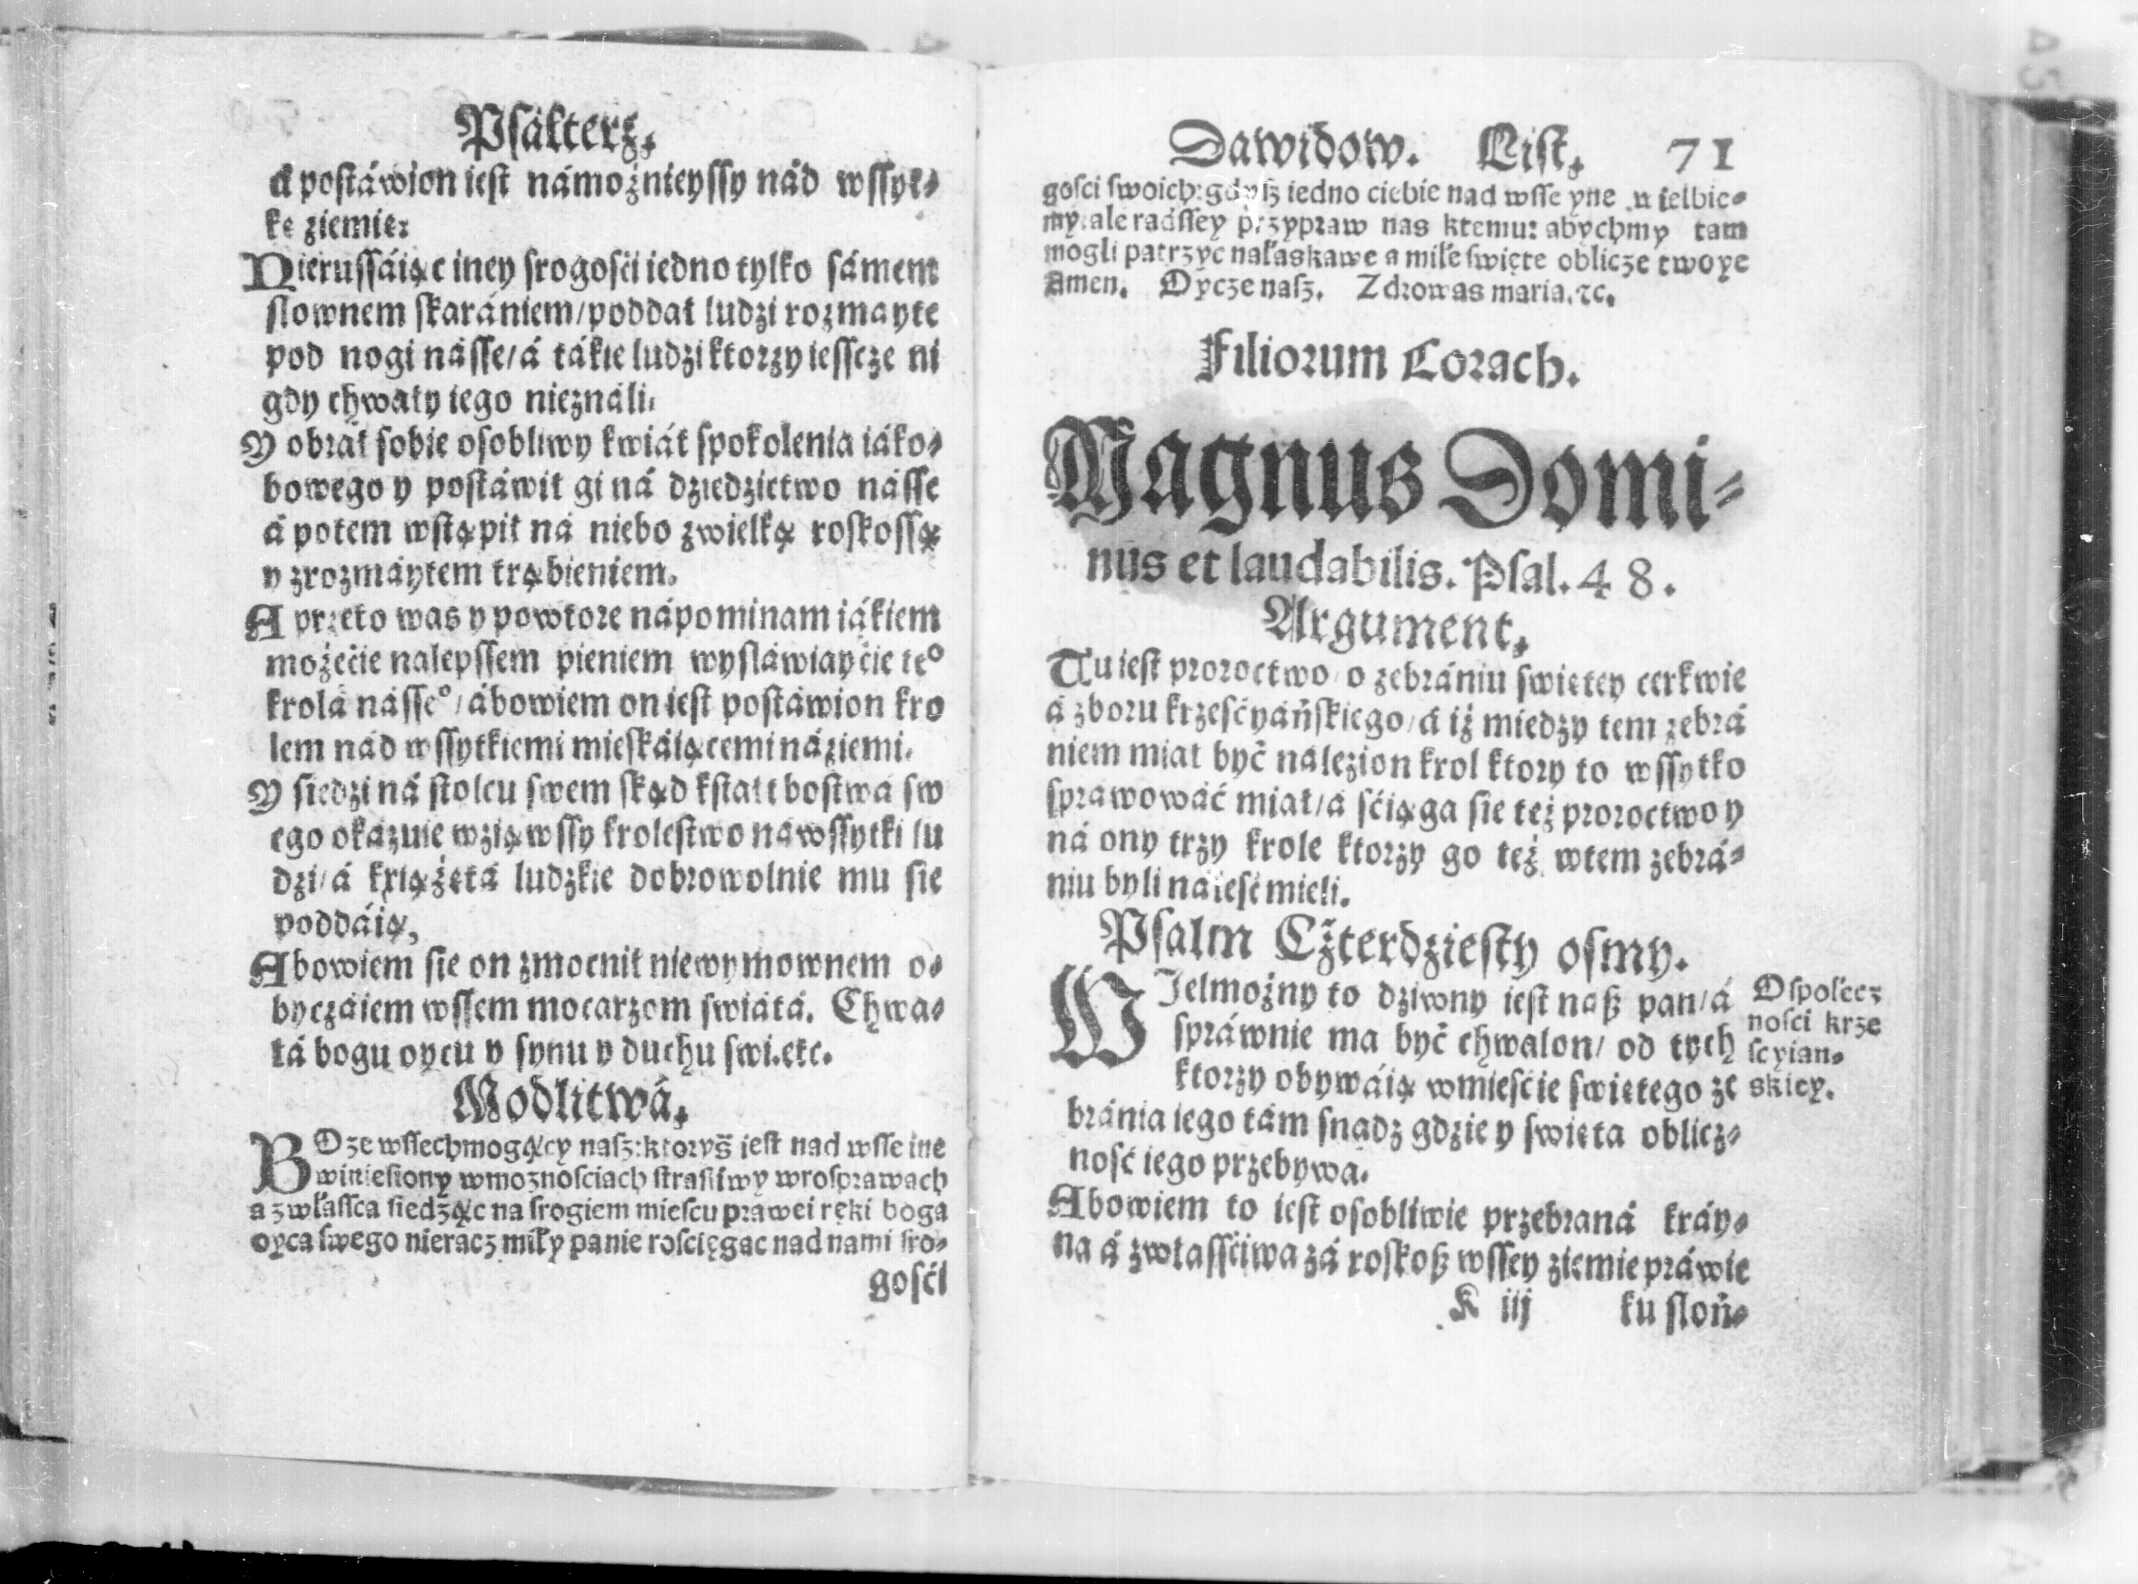 Psálterz.
á postáwion iest námożnieyssy nád wssyt⸗
kę ziemię:
Nierussáiąc iney srogosći iedno tylko sámem
slownem skarániem/ poddał ludzi rozmayte
pod nogi násse/ á tákie ludzi ktorzy iesscze ni
gdy chwały iego nieználi.
Y obrał sobie osobliwy kwiát spokolenia iáko⸗
bowego y postáwił gi ná dziedzictwo násse
á potem wstąpił ná niebo zwielką roskossą
y zrozmáytem trąbieniem.
A przeto was y powtore nápominam iákiem
możećie nalepssem pieniem wysláwiayćie te°
krolá násse°/ ábowiem on iest postáwion kro
lem nád wssytkiemi mieskáiącemi náziemi.
Y siedzi ná stolcu swem skąd kstałt bostwa sw
ego okázuie wziąwssy krolestwo náwssytki lu
dzi/ á kxiążętá ludzkie dobrowolnie mu się
poddáią,
Abowiem się on zmocnił niewymownem o⸗
byczáiem wssem mocarzom swiátá. Chwa⸗
łá bogu oycu y synu y duchu swi.etc.
Modlitwá.
BOze wssechmogący nasz: ktoryś iest nad wsse ine
winiesiony wmoznosciach strasliwy wrosprawach
a zwłassca siedząc na srogiem miescu prawei ręki boga
oyca swego nieracz miły panie roscięgac nad nami sro⸗
gosći
Dawidow. List. 71
gosci swoich: gdysz iedno ciebie nad wsse yne wielbie⸗
my: ale radssey przypraw nas ktemu: abychmy tam
mogli patrzyc nałaskawe a miłe swięte oblicze twoye
Amen. Oycze nasz. Zdrowas maria. ⁊c.
Filiorum Corach.
Magnus Domi⸗
nus et laudabilis. Psal. 48.
Argument.
Tu iest proroctwo/ o zebrániu swiętey cerkwie
á zboru krześćyáńskiego/ á iż miedzy tem zebrá
niem miał być nálezion krol ktory to wssytko
spráwowáć miał/ á śćiąga sie też proroctwo y
ná ony trzy krole ktorzy go też wtem zebrá⸗
niu byli náleść mieli.
Psalm Czterdziesty osmy.
WIelmożny to dziwny iest nasz pan/ á
spráwnie ma być chwalon/ od tych
ktorzy obywáią wmieśćie swiętego ze
bránia iego tám snadz gdzie y swięta oblicz⸗
ność iego przebywa.
Ospołecz
nosci krze
scyian⸗
skiey.
Abowiem to iest osobliwie przebraná kráy⸗
na á zwłassćiwa zá roskosz wssey ziemie práwie
K iij ku słoń⸗